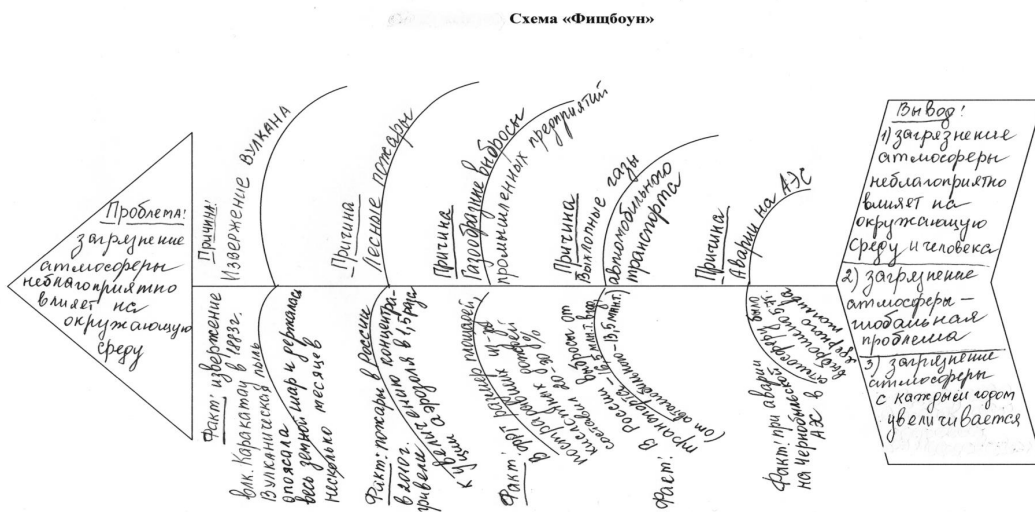 Схема «Фищбоун»
Проблема:
загрязнение
атмосферы
неблагоприятно
влияет на
окружающую
среду
Причина:
Извержение вулкана
Причина
Лесные пожары
Причина
Газообразные выбросы
промышленных предприятий
Причина
Выхлопные газы
автомобильного
транспорта
Причина
Аварии на АЭС
Факт: извержение
влк. Каракатау в 1883г.
Вулканическая пыль
опоясала
весь земной шар и держалась
несколько месяцев
Факт: пожары в России
в 2010г.
привели к увеличению концентра-
ции аэрозоля в 1,5 раза
Факт:
В ФРГ размер площадей,
пострадавших из-за
кислотных дождей
составил 20-30%
Факт:
В России выбросы от
транспорта - 16,5 млн.т. в год
(от автомобильного - 13,5 млн.т.)
Факт: при аварии
на Чернобыльской
АЭС в
атмосферу было
выброшено 5%
ядерного
топлива
Вывод!
1) загрязнение
атмосферы
неблагоприятно
влияет на
окружающую
среду и человека
2) загрязнение
атмосферы -
глобальная
проблема
3) загрязнение
атмосферы
с каждым годом
увеличивается